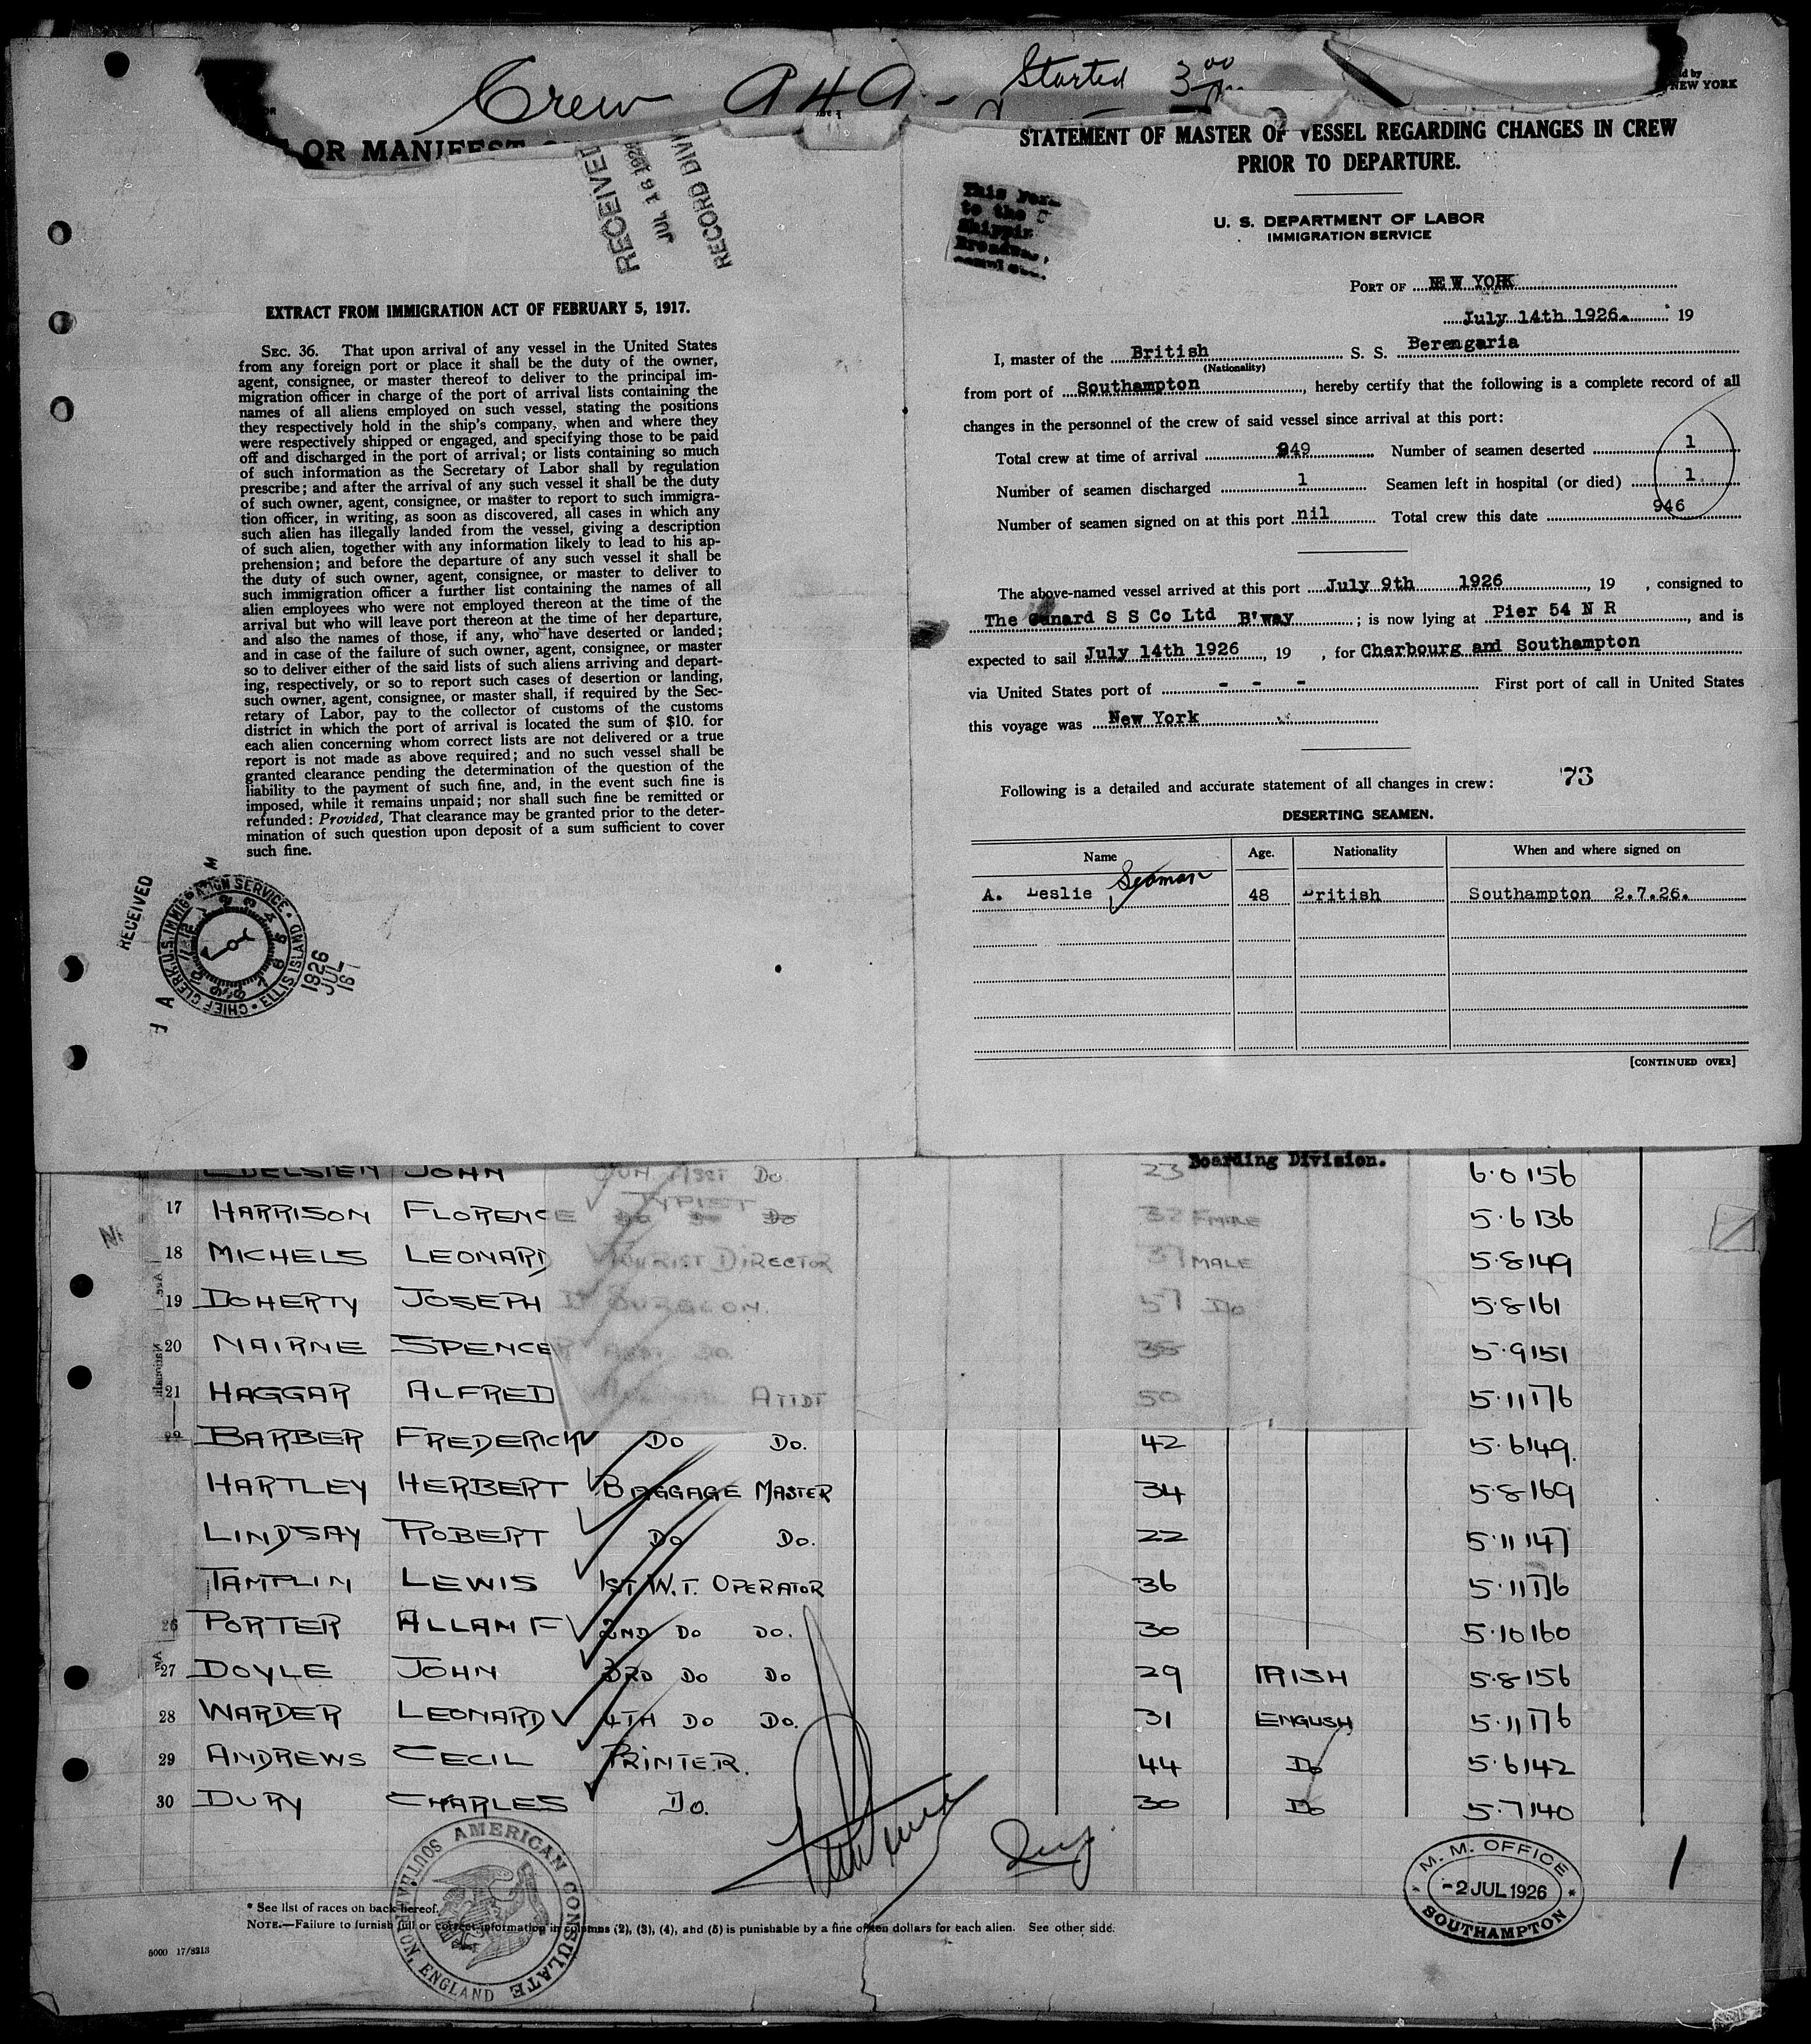 Crew 949 - Started 3 00
d by
NEW YORK
OR MANIFEST
RECEIVED
JUL 16 1926
RECORD DIVI
EXTRACT FROM IMMIGRATION ACT OF FEBRUARY 5, 1917.
SEC. 36. That upon arrival of any vessel in the United States
from any foreign port or place it shall be the duty of the owner,
agent, consignee, or master thereof to deliver to the principal im-
migration officer in charge of the port of arrival lists containing the
names of all aliens employed on such vessel, stating the positions
they respectively hold in the ship's company, when and where they
were respectively shipped or engaged, and specifying those to be paid
off and discharged in the port of arrival; or lists containing so much
of such information as the Secretary of Labor shall by regulation
prescribe; and after the arrival of any such vessel it shall be the duty
of such owner, agent, consignee, or master to report to such immigra-
tion officer, in writing, as soon as discovered, all cases in which any
such alien has illegally landed from the vessel, giving a description
of such alien, together with any information likely to lead to his ap-
prehension; and before the departure of any such vessel it shall be
the duty of such owner, agent, consignee, or master to deliver to
such immigration officer a further list containing the names of all
alien employees who were not employed thereon at the time of the
arrival but who will leave port thereon at the time of her departure,
and also the names of those, if any, who have deserted or landed;
and in case of the failure of such owner, agent, consignee, or master
so to deliver either of the said lists of such aliens arriving and depart-
ing, respectively, or so to report such cases of desertion or landing,
such owner, agent, consignee, or master shall, if required by the Sec-
retary of Labor, pay to the collector of customs of the customs
district in which the port of arrival is located the sum of $10. for
each alien concerning whom correct lists are not delivered or a true
report is not made as above required; and no such vessel shall be
granted clearance pending the determination of the question of the
liability to the payment of such fine, and, in the event such fine is
imposed, while it remains unpaid; nor shall such fine be remitted or
refunded: Provided, That clearance may be granted prior to the deter-
mination of such question upon deposit of a sum sufficient to cover
such fine.
RECEIVED
CHIEF CLERK, U.S. IMMIGRATION SERVICE • ELLIS ISLAND
1926
JUL
16
STATEMENT OF MASTER OF VESSEL REGARDING CHANGES IN CREW
PRIOR TO DEPARTURE.
This For
to the
Shippin
Broadw
U. S. DEPARTMENT OF LABOR
IMMIGRATION SERVICE
PORT OF NEW YORK
July 14th 1926. 19
I, master of the British S. S. Berengaria
(Nationality)
from port of Southampton, hereby certify that the following is a complete record of all
changes in the personnel of the crew of said vessel since arrival at this port:
Total crew at time of arrival 949 Number of seamen deserted 1
Number of seamen discharged 1 Seamen left in hospital (or died) 1
Number of seamen signed on at this port nil Total crew this date 946
The above-named vessel arrived at this port July 9th 1926, 19 , consigned to
The Cunard S S Co Ltd B'way ; is now lying at Pier 54 N R, and is
expected to sail July 14th 1926, 19 , for Charbourg and Southampton
via United States port of - - - First port of call in United States
this voyage was New York
Following is a detailed and accurate statement of all changes in crew: 73
DESERTING SEAMEN.
Name Age. Nationality When and where signed on
A. Leslie Seaman 48 British Southampton 2.7.26.
[CONTINUED OVER]
Boarding Division.
JOHN JUN. ASST DO. 23 6.0 156
TYPIST
17 HARRISON FLORENCE DO DO DO 32 FMALE 5.6 136
18 MICHELS LEONARD TOURIST DIRECTOR 37 MALE 5.8 149
19 DOHERTY JOSEPH SURGEON. 57 DO 5.8 161
20 NAIRNE SPENCER ASST DO. 38 5.9 151
21 HAGGAR ALFRED ATTDT 50 5.11 176
22 BARBER FREDERICK DO DO. 42 5.6 149.
HARTLEY HERBERT BAGGAGE MASTER 34 5.8 169
LINDSAY ROBERT DO DO. 22 5.11 147
TAMPLIN LEWIS 1ST W.T. OPERATOR 36 5.11 176
26 PORTER ALLAN F 2ND DO DO. 30 5.10 160
27 DOYLE JOHN 3RD DO DO 29 IRISH 5.8 156
28 WARDER LEONARD 4TH DO DO. 31 ENGLISH 5.11 176
29 ANDREWS CECIL PRINTER. 44 DO 5.6 142
30 DURY CHARLES DO. 30 DO 5.7 140
AMERICAN CONSULATE
SOUTHAMPTON, ENGLAND
M. M. OFFICE
- 2 JUL 1926
SOUTHAMPTON
1
* See list of races on back hereof.
NOTE.—Failure to furnish full or correct information in columns (2), (3), (4), and (5) is punishable by a fine of ten dollars for each alien. See other side.
5000 17/8213